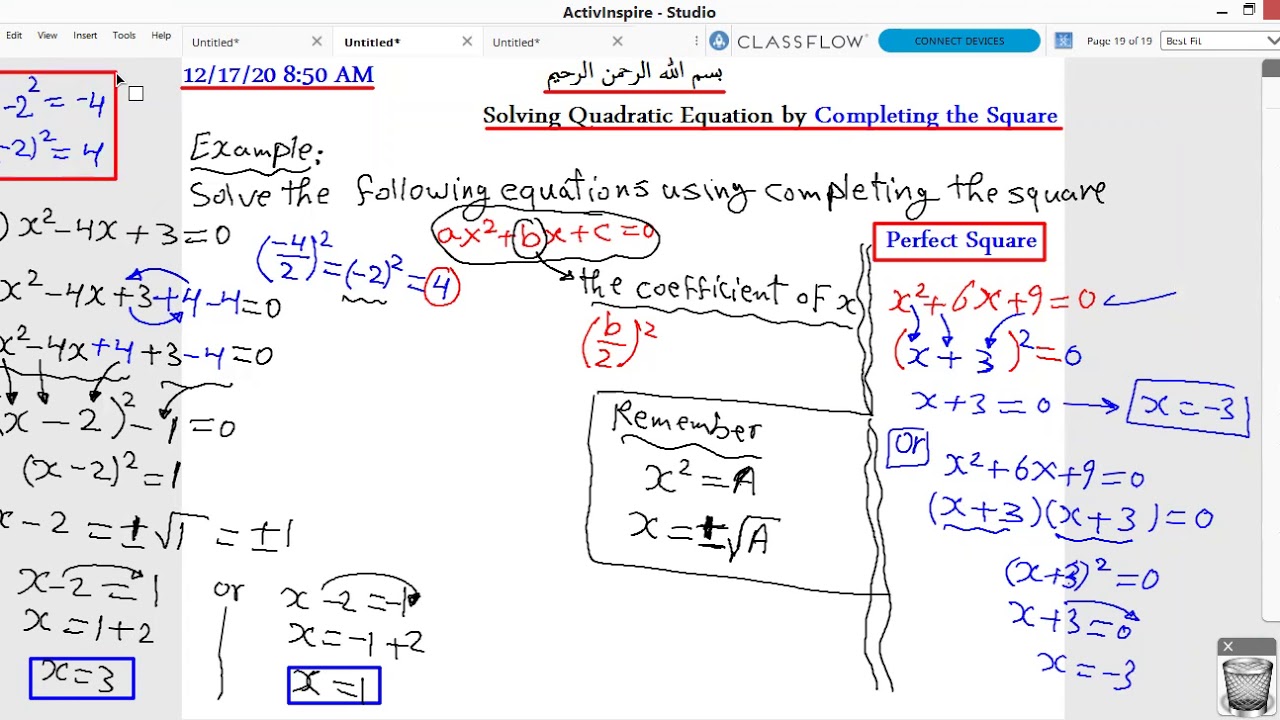 ActivInspire - Studio
Edit View Insert Tools Help
Untitled* Untitled* Untitled*
CLASSFLOW CONNECT DEVICES Page 19 of 19 Best Fit
12/17/20 8:50 AM
بسم الله الرحمن الرحيم
Solving Quadratic Equation by Completing the Square
-2² = -4
-2)² = 4
Example:
Solve the following equations using completing the square
) x² - 4x + 3 = 0
x² - 4x + 3 + 4 - 4 = 0
x² - 4x + 4 + 3 - 4 = 0
(x - 2)² - 1 = 0
(x - 2)² = 1
x - 2 = ± √1 = ± 1
x - 2 = 1
x = 1 + 2
x = 3
or
x - 2 = -1
x = -1 + 2
x = 1
(-4/2)² = (-2)² = 4
ax² + bx + c = 0
the coefficient of x
(b/2)²
Remember
x² = A
x = ± √A
Perfect Square
x² + 6x + 9 = 0
(x + 3)² = 0
x + 3 = 0 → x = -3
Or
x² + 6x + 9 = 0
(x + 3)(x + 3) = 0
(x + 3)² = 0
x + 3 = 0
x = -3